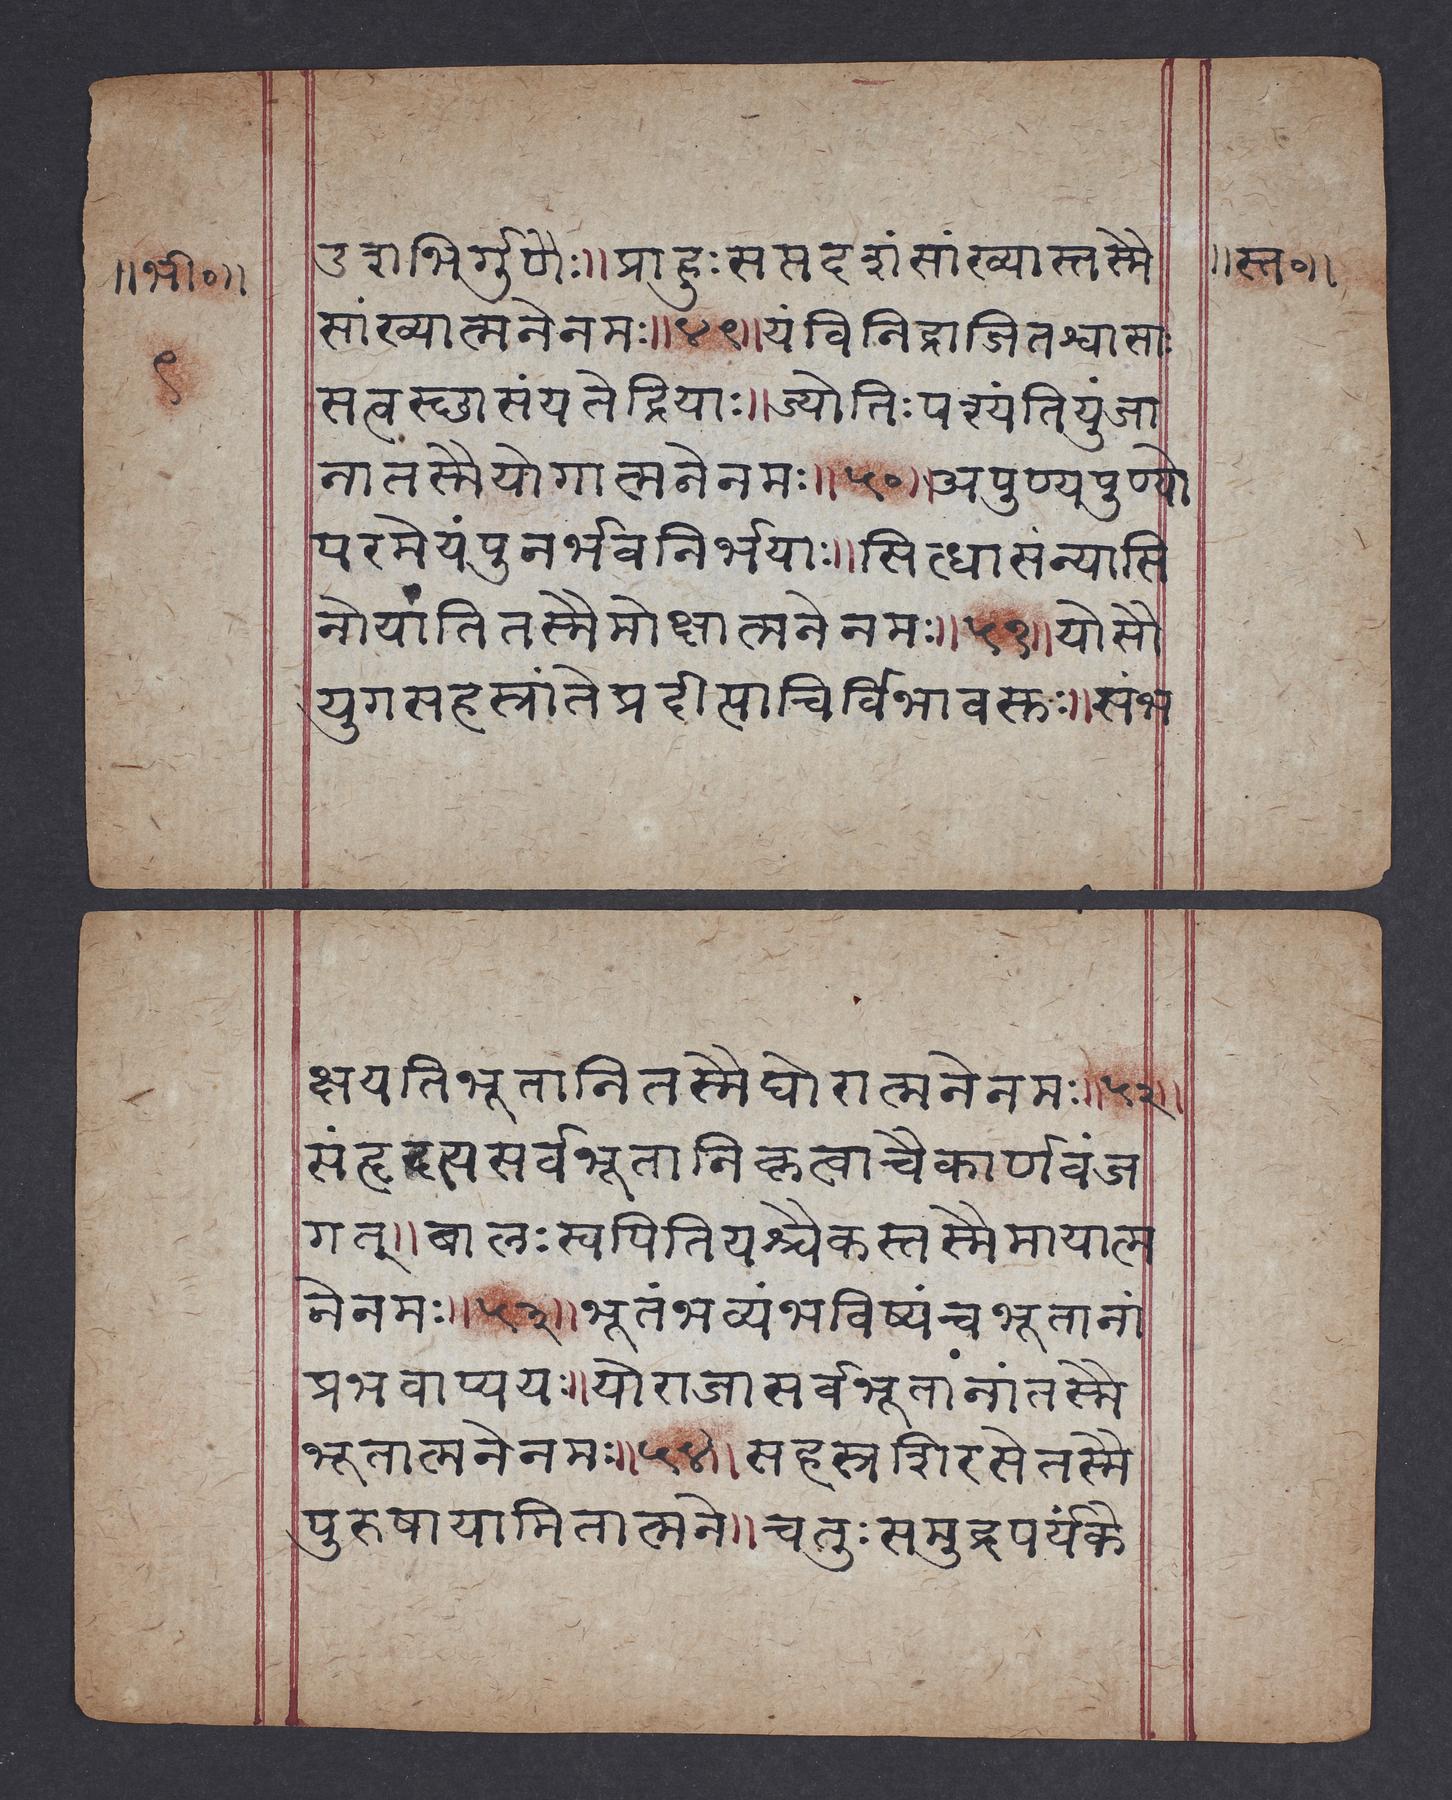 ॥भी०॥
९
॥स्त०॥
डशभिर्गुणैः॥प्राहुःसप्तदशंसांख्यास्तस्मै
सांख्यात्मनेनमः॥४९॥यंविनिद्राजितश्वासाः
सत्वस्छासंयतेद्रियाः॥ज्योतिःपश्यंतियुंजा
नातस्मैयोगात्मनेनमः॥५०॥अपुण्यपुण्यो
परमेयंपुनर्भवनिर्भयाः॥सित्धासंन्यासि
नोयांतितस्मैमोक्षात्मनेनमः॥५१॥योसौ
युगसहस्त्रांतेप्रदीप्तार्चिर्विभावसुः॥संभ
क्षयतिभूतानितस्मैघोरात्मनेनमः॥५२॥
संहृत्यसर्वभूतानिकृत्वाचैकार्णवंज
गत्॥बालःस्वपितियश्चैकस्तस्मैमायात्म
नेनमः॥५३॥भूतंभव्यंभविष्यंचभूतानां
प्रभवाप्ययः॥योराजासर्वभूतांनांतस्मै
भूतात्मनेनमः॥५४॥सहस्त्रशिरसेतस्मै
पुरुषायामितात्मने॥चतुःसमुद्रपर्यंके